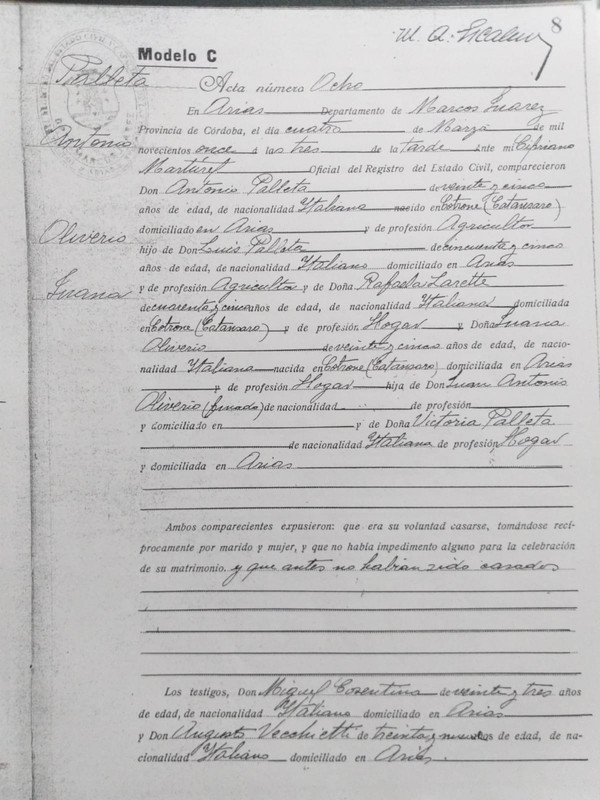 8
M. A.
Modelo C
Palleta
Antonio
Oliverio
Juana
Acta número Ocho
En Arias Departamento de Marcos Juarez
Provincia de Córdoba, el día cuatro de Marzo de mil
novecientos once á las tres de la tarde Ante mi Cipriano
Oficial del Registro del Estado Civil, comparecieron
Don Antonio Palleta de veinte y cinco
años de edad, de nacionalidad Italiana nacido en Cotrone (Catansaro)
domiciliado en Arias y de profesión Agricultor
hijo de Don Luis Palleta de cincuenta y cinco
años de edad, de nacionalidad Italiano domiciliado en Arias
y de profesión Agricultor y de Doña Rafaela Larette
de cuarenta y cinco años de edad, de nacionalidad Italiana domiciliada
en Cotrone (Catansaro) y de profesión Hogar y Doña Juana
Oliverio de veinte y cinco años de edad, de nacio-
nalidad Italiana nacida en Cotrone (Catansaro) domiciliada en Arias
y de profesión Hogar hija de Don Juan Antonio
Oliverio (finado) de nacionalidad de profesión
y domiciliado en y de Doña Victoria Palleta
de nacionalidad Italiana de profesión Hogar
y domiciliada en Arias
Ambos comparecientes expusieron: que era su voluntad casarse, tomándose recí-
procamente por marido y mujer, y que no había impedimento alguno para la celebración
de su matrimonio. y que antes no habian sido casados
Los testigos, Don Miguel Cosentino de veinte y tres años
de edad, de nacionalidad Italiano domiciliado en Arias
y Don Augusto Vecchietti de treinta y nueve años de edad, de na-
cionalidad Italiano domiciliado en Arias.